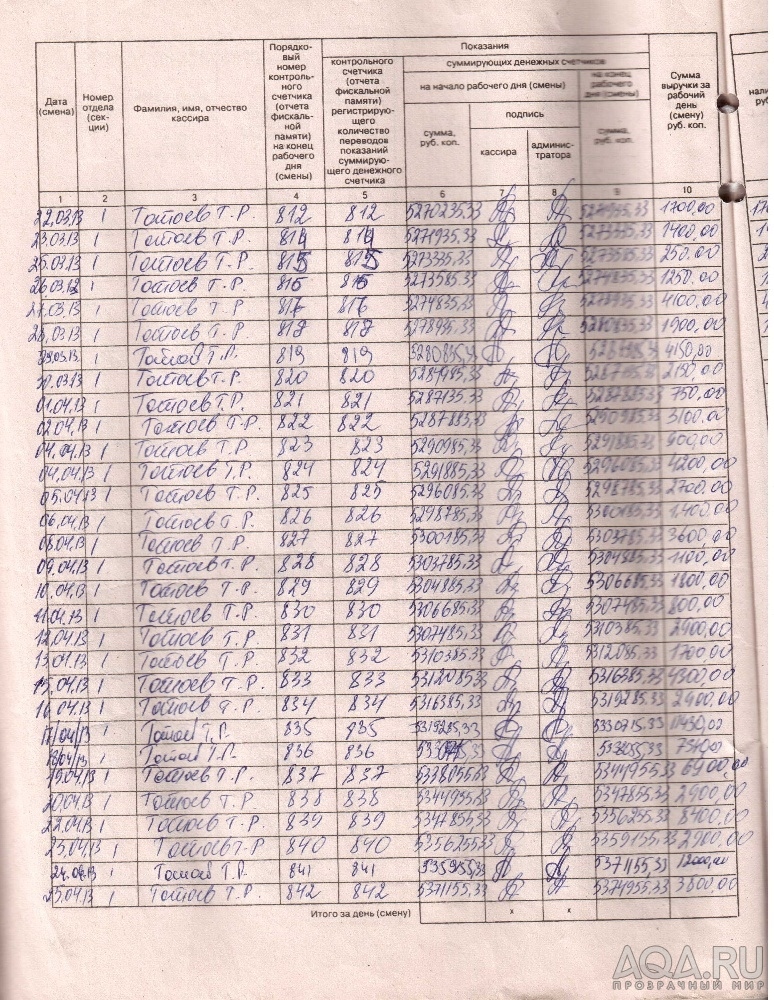 Дата (смена) Номер отдела (секции) Фамилия, имя, отчество кассира Порядковый номер контрольного счетчика (отчета фискальной памяти) на конец рабочего дня (смены) Показания Сумма выручки за рабочий день (смену) руб. коп.
контрольного счетчика (отчета фискальной памяти) регистрирующего количество переводов показаний суммирующего денежного счетчика суммирующих денежных счетчиков
на начало рабочего дня (смены) на конец рабочего дня (смены)
сумма, руб. коп. подпись сумма, руб. коп.
кассира администратора
1 2 3 4 5 6 7 8 9 10
22.03.13 1 Татоев Т.Р. 812 812 5270235,33 1700,00
23.03.13 1 Татоев Т.Р. 814 814 5271935,33 1400,00
25.03.13 1 Татоев Т.Р. 815 815 5273335,33 250,00
26.03.13 1 Татоев Т.Р. 816 816 5273585,33 1250,00
27.03.13 1 Татоев Т.Р. 817 5274835,33 4100,00
28.03.13 1 Татоев Т.Р. 818 818 5278935,33 5280835,33 1900,00
29.03.13 1 Татоев Т.Р. 819 819 5280835,33 4150,00
30.03.13 1 Татоев Т.Р. 820 820 2150,00
01.04.13 1 Татоев Т.Р. 821 821 5287135,33 750,00
02.04.13 1 Татоев Т.Р. 822 822 5287885,33 5290985,33 3100,00
04.04.13 1 Татоев Т.Р. 823 823 5290985,33 5291885,33 900,00
04.04.13 1 Татоев Т.Р. 824 824 5291885,33 5296085,33 4200,00
05.04.13 1 Татоев Т.Р. 825 825 5296085,33 5298785,33 2700,00
06.04.13 1 Татоев Т.Р. 826 826 5298785,33 5300185,33 1400,00
08.04.13 1 Татоев Т.Р. 827 827 5300185,33 5303785,33 3600,00
09.04.13 1 Татоев Т.Р. 828 828 5303785,33 5304885,33 1100,00
10.04.13 1 Татоев Т.Р. 829 829 5304885,33 5306685,33 1800,00
11.04.13 1 Татоев Т.Р. 830 830 5306685,33 5307485,33 800,00
12.04.13 1 Татоев Т.Р. 831 831 5307485,33 5310385,33 2900,00
13.04.13 1 Татоев Т.Р. 832 832 5310385,33 5312085,33 1700,00
15.04.13 1 Татоев Т.Р. 833 833 5312085,33 5316385,33 4300,00
16.04.13 1 Татоев Т.Р. 834 834 5316385,33 5319285,33 2900,00
17.04.13 1 Татоев Т.Р. 835 835 5319285,33 5330715,33 11430,00
18.04.13 1 Татоев Т.Р. 836 836
19.04.13 1 Татоев Т.Р. 837 837 5338055,33 5344955,33 6900,00
20.04.13 1 Татоев Т.Р. 838 838 5344955,33 5347855,33 2900,00
22.04.13 1 Татоев Т.Р. 839 839 5347855,33 5356255,33 8400,00
23.04.13 1 Татоев Т.Р. 840 840 5356255,33 5359155,33 2900,00
24.04.13 1 Татоев Т.Р. 841 841 5359155,33 5371155,33 12000,00
25.04.13 1 Татоев Т.Р. 842 842 5371155,33 5374955,33 3800,00
Итого за день (смену) х х
AQA.RU
ПРОЗРАЧНЫЙ МИР